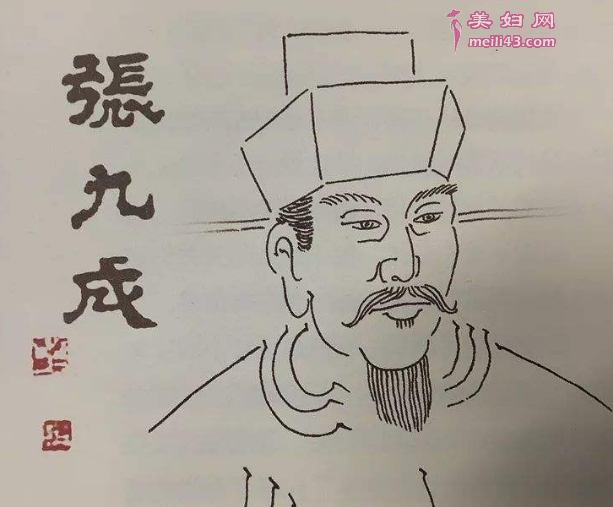 張九成
美妇网
meili43.com